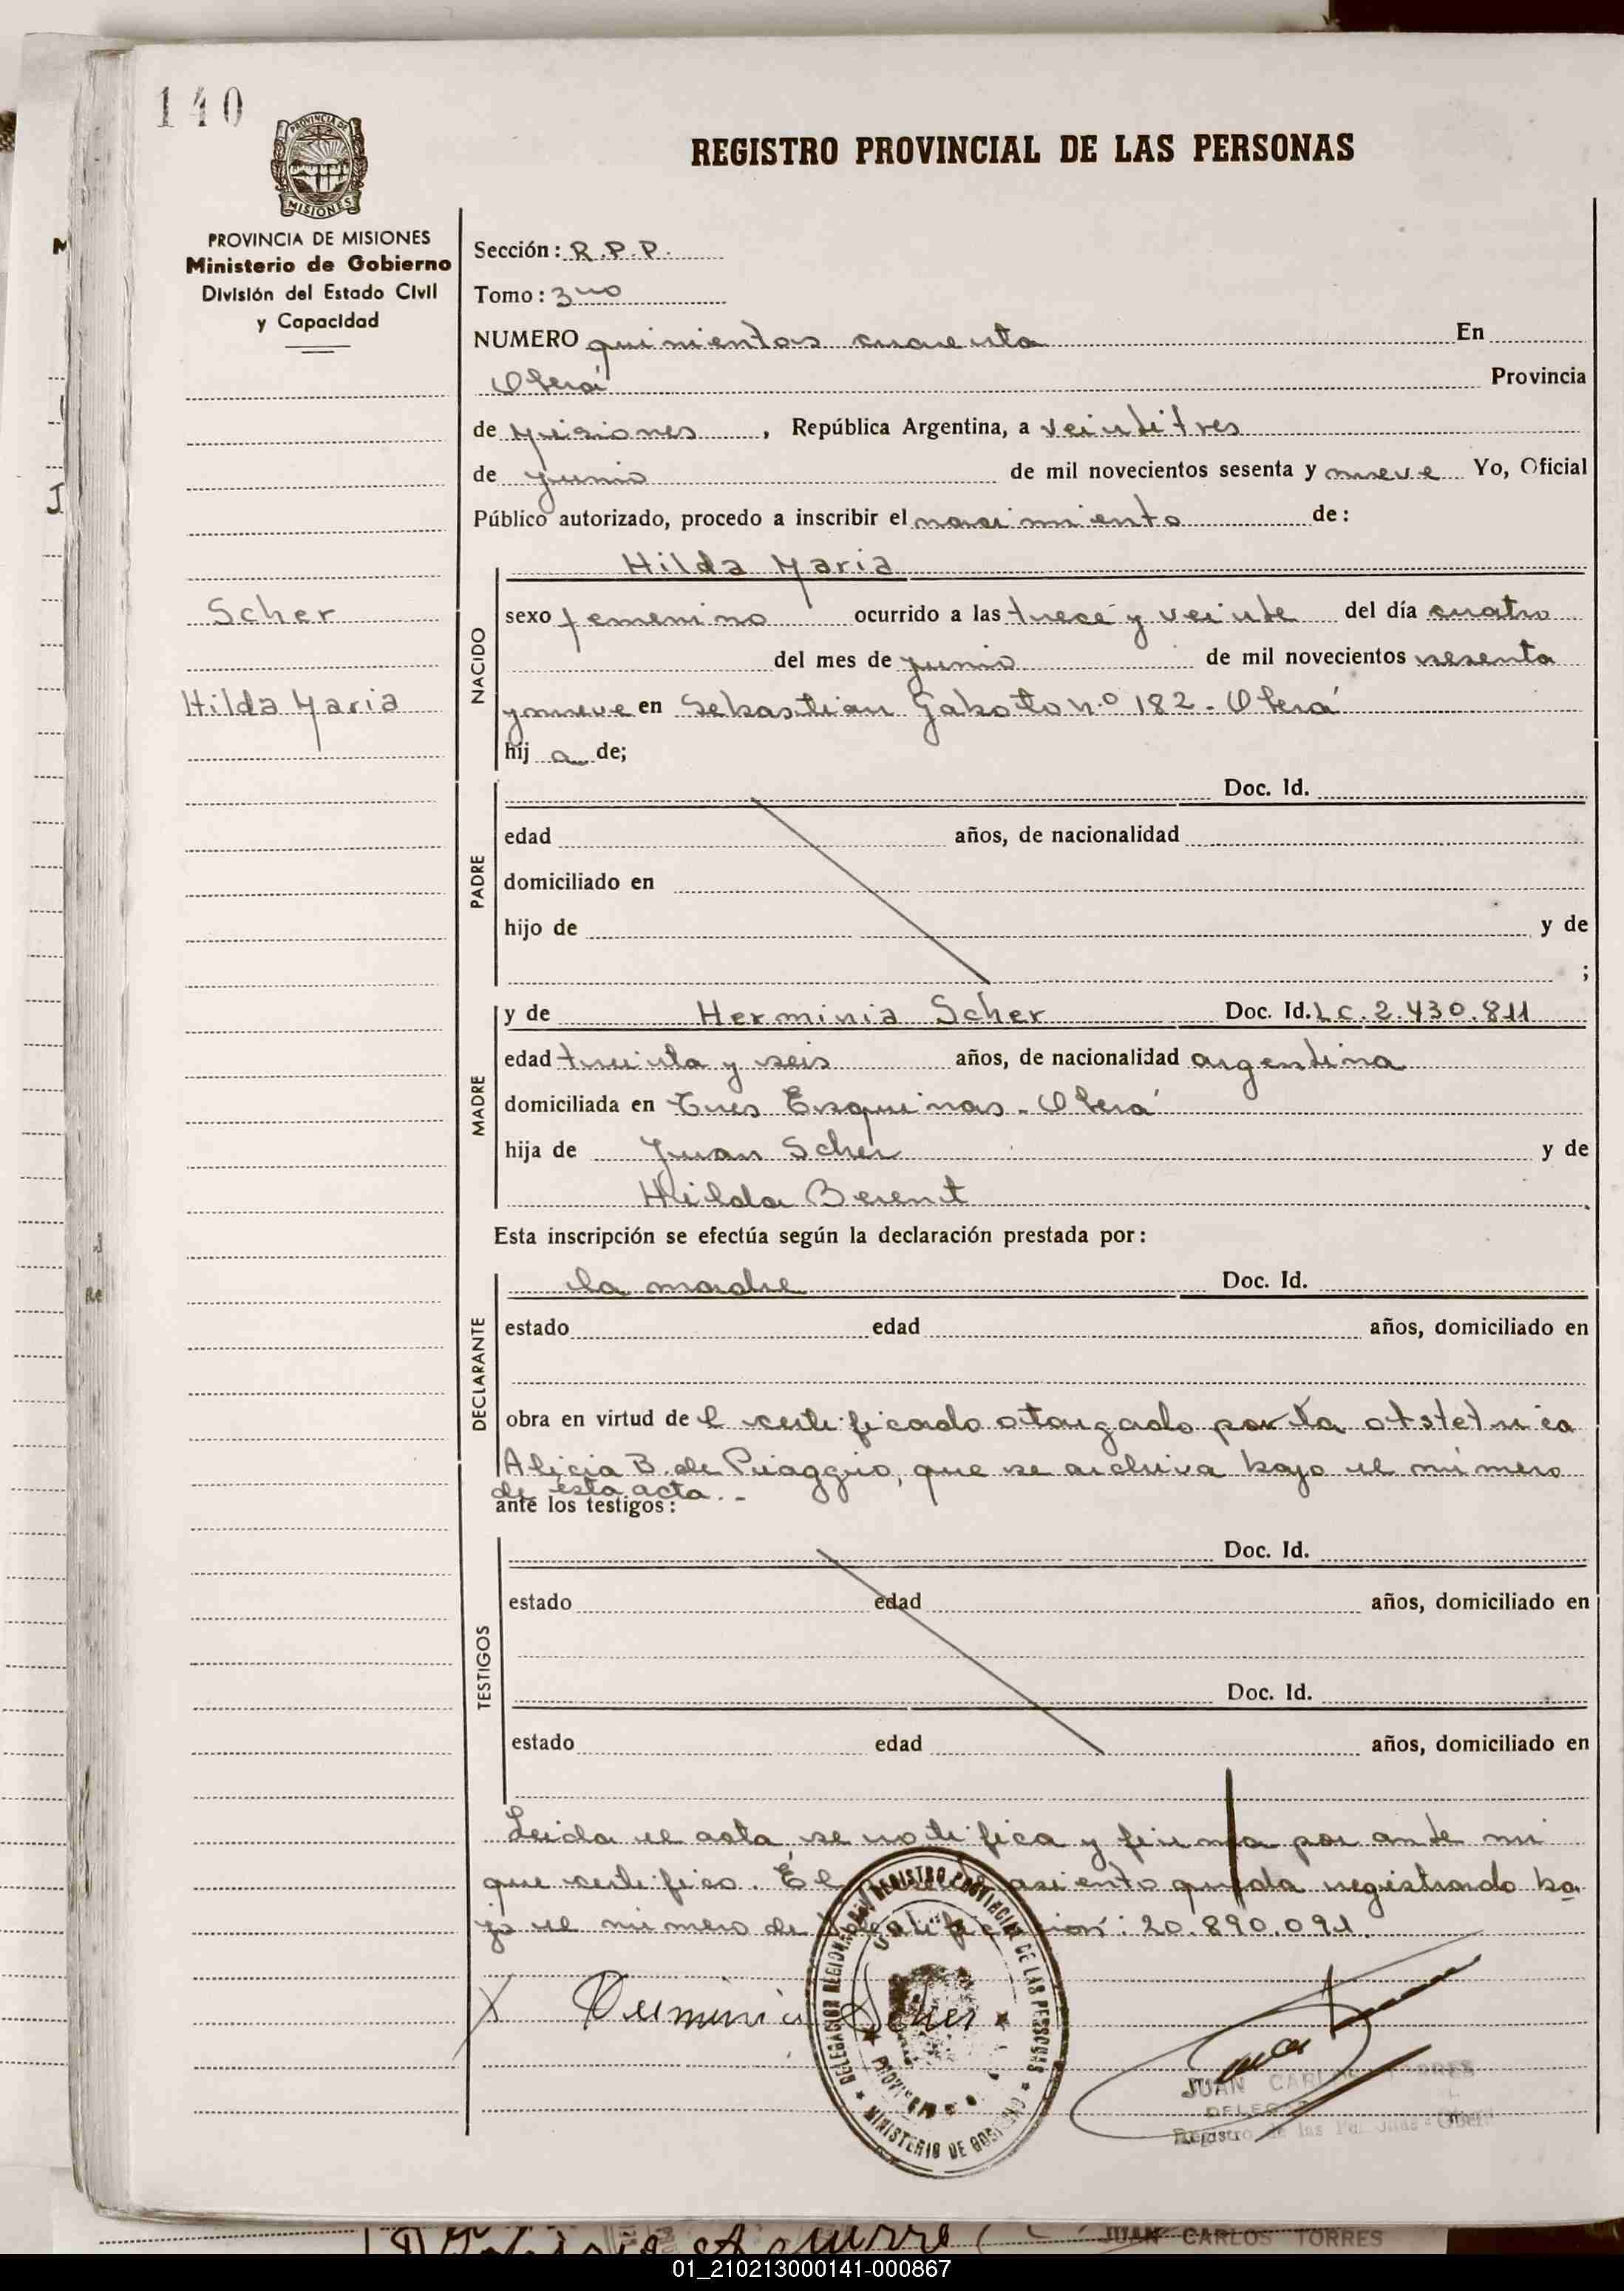 140
PROVINCIA DE
MISIONES
REGISTRO PROVINCIAL DE LAS PERSONAS
PROVINCIA DE MISIONES
Ministerio de Gobierno
División del Estado Civil
y Capacidad
Sección: R.P.P.
Tomo: 3ro
NUMERO quinientos cuarenta En
Oberá Provincia
de Misiones, República Argentina, a veintitres
de junio de mil novecientos sesenta y nueve Yo, Oficial
Público autorizado, procedo a inscribir el nacimiento de:
Scher
Hilda Maria
NACIDO
Hilda Maria
sexo femenino ocurrido a las trece y veinte del día cuatro
del mes de junio de mil novecientos sesenta
y nueve en Sebastian Gaboto Nº 182 - Oberá
hij a de;
PADRE
Doc. Id.
edad años, de nacionalidad
domiciliado en
hijo de y de
;
MADRE
y de Herminia Scher Doc. Id. L C. 2.430.811
edad treinta y seis años, de nacionalidad argentina
domiciliada en Tres Esquinas - Oberá
hija de Juan Scher y de
Hilda Berent
Esta inscripción se efectúa según la declaración prestada por:
DECLARANTE
la madre Doc. Id.
estado edad años, domiciliado en
obra en virtud de l certificado otorgado por la obstetrica
Alicia B. de Piaggio, que se archiva bajo el número
de esta acta. -
ante los testigos:
TESTIGOS
Doc. Id.
estado edad años, domiciliado en
Doc. Id.
estado edad años, domiciliado en
Leida el acta se notifica y firma por ante mi
que certifico. El asiento queda registrado ba
jo el número de : 20.890.091.
X Herminia Scher
DELEGACION REGIONAL DEL REGISTRO PROVINCIAL DE LAS PERSONAS
MINISTERIO DE GOBIERNO
JUAN CARLOS TORRES
Registro de las
JUAN CARLOS TORRES
01_210213000141-000867